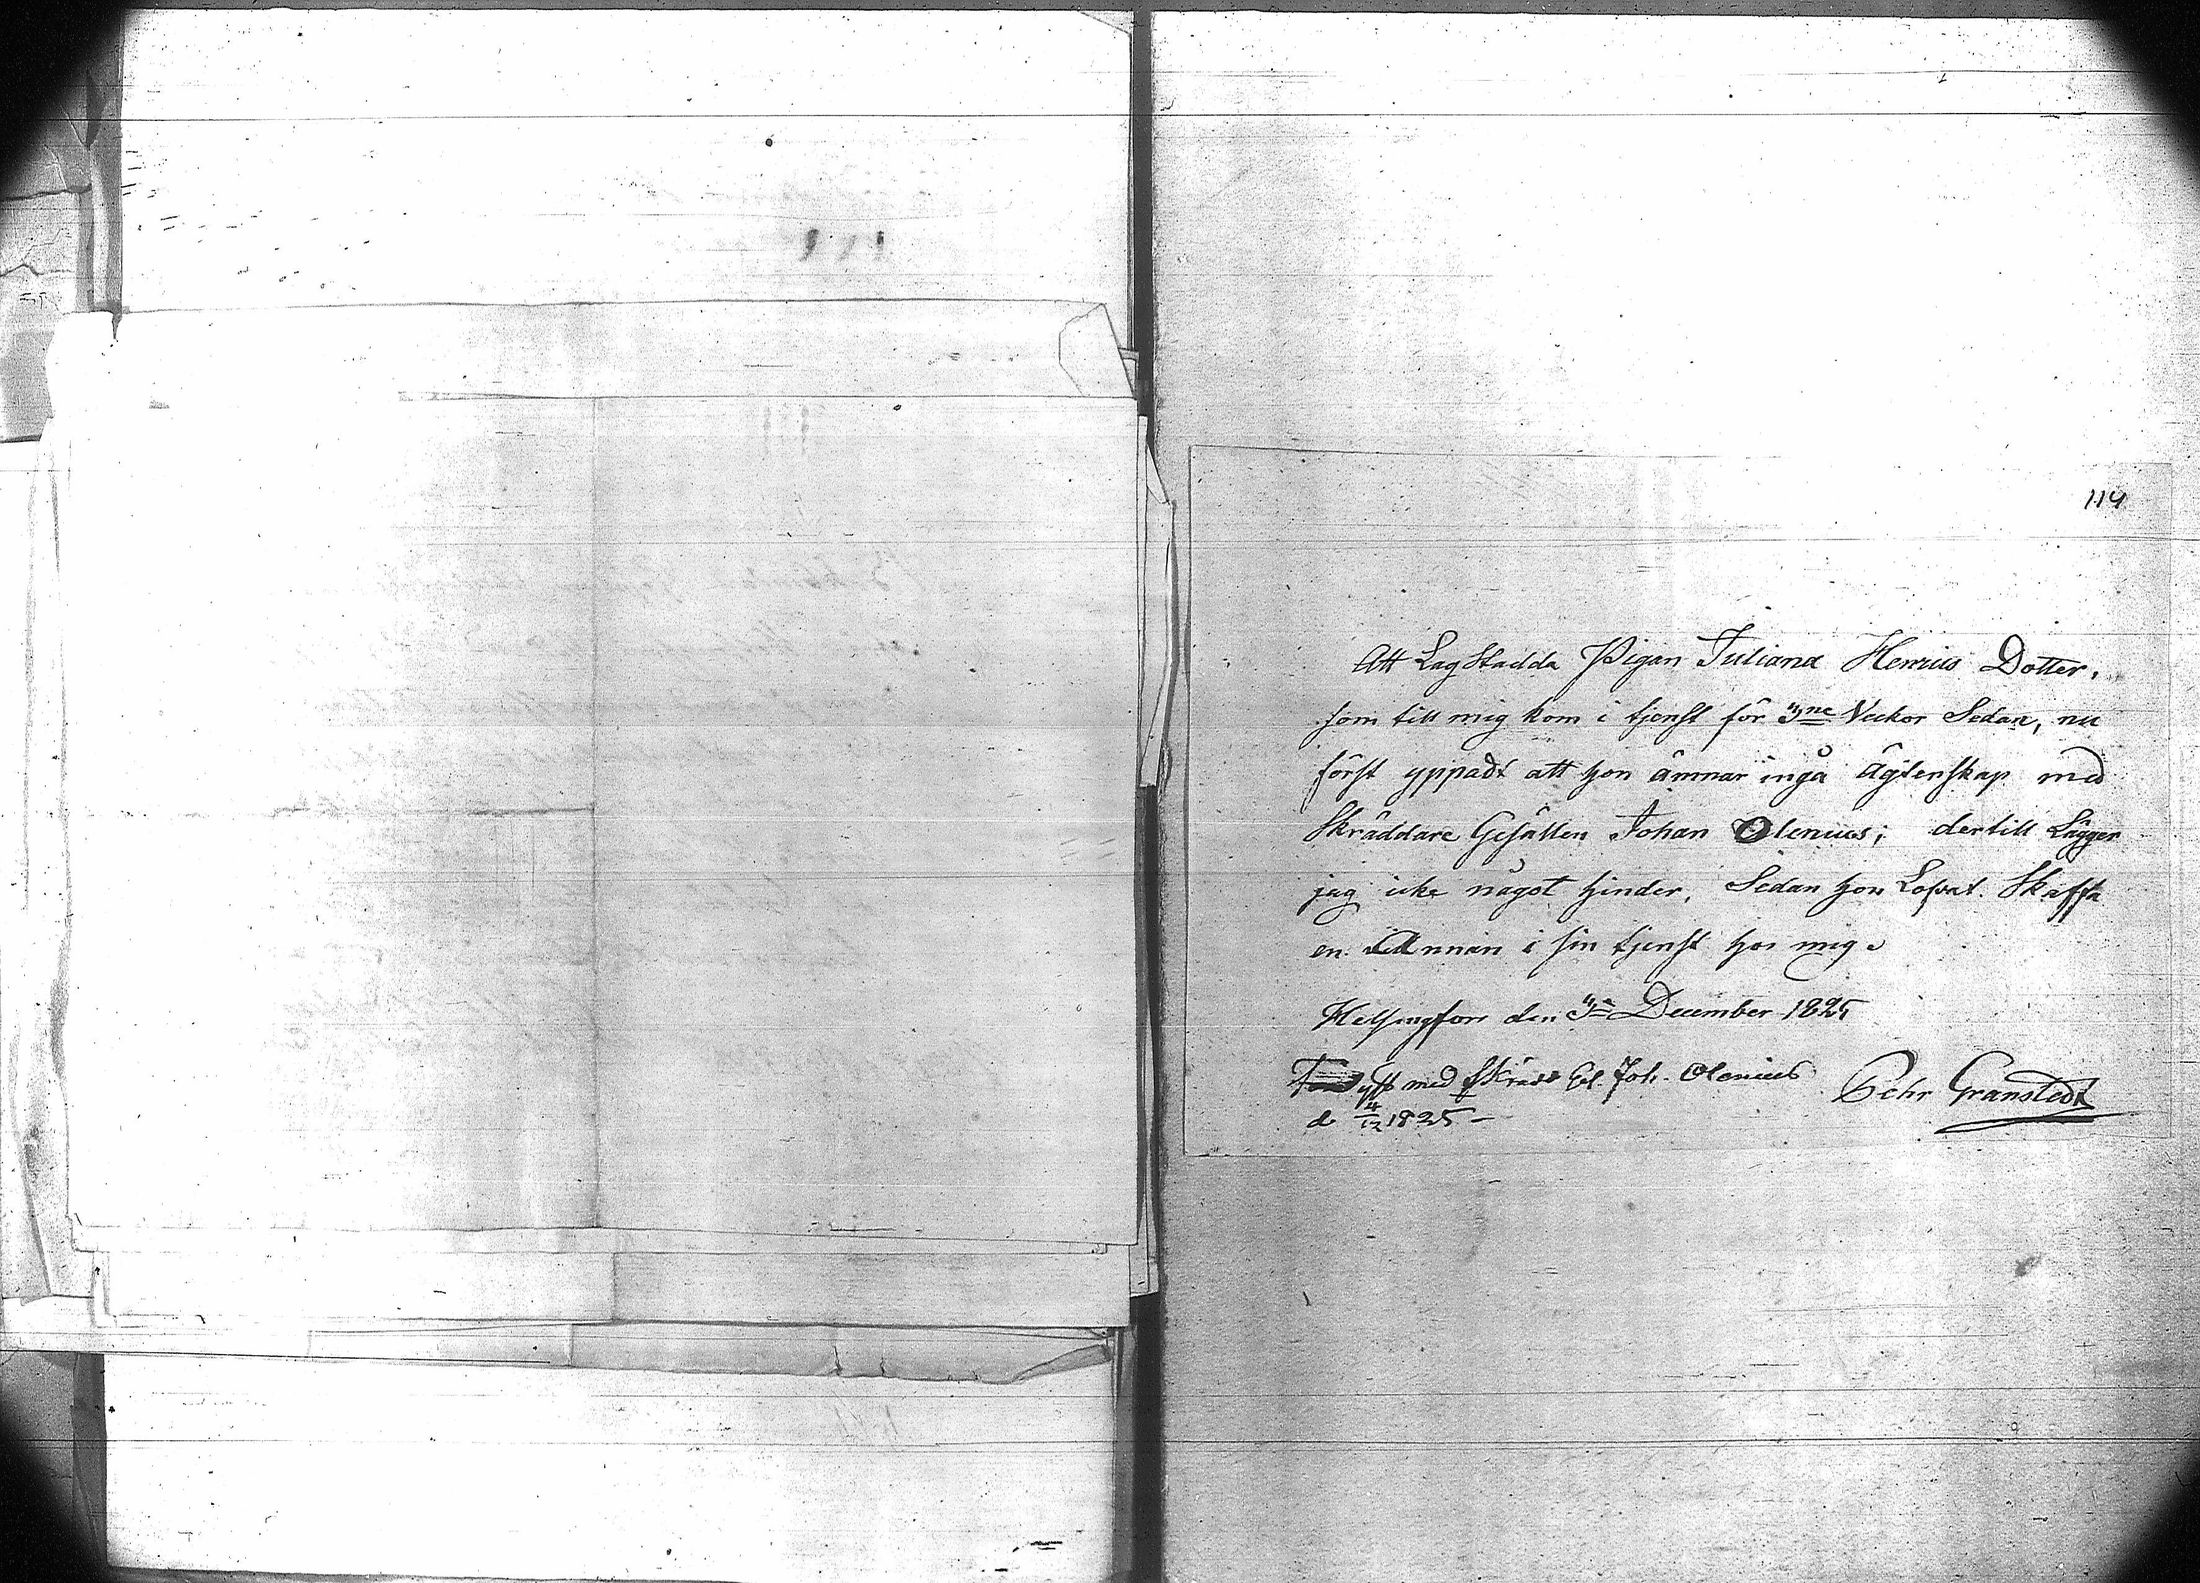 114
Att Lag Stadda Pigan Juliana Henrics Dotter,
som till mig kom i tjenst för 3ne Veckor Sedan, nu
först yppadt att hon ämnar ingå ägtenskap med
Skräddare Gesällen Johan Olenius; dertill Lägger
jag icke något hinder, Sedan hon Lofvat Skaffa
en Annan i sin tjenst hos mig.
Helsingfors den 3e December 1825
Pehr Granstedt
med Skrädd Gel. Joh. Olenius
d 4/12 1825 –